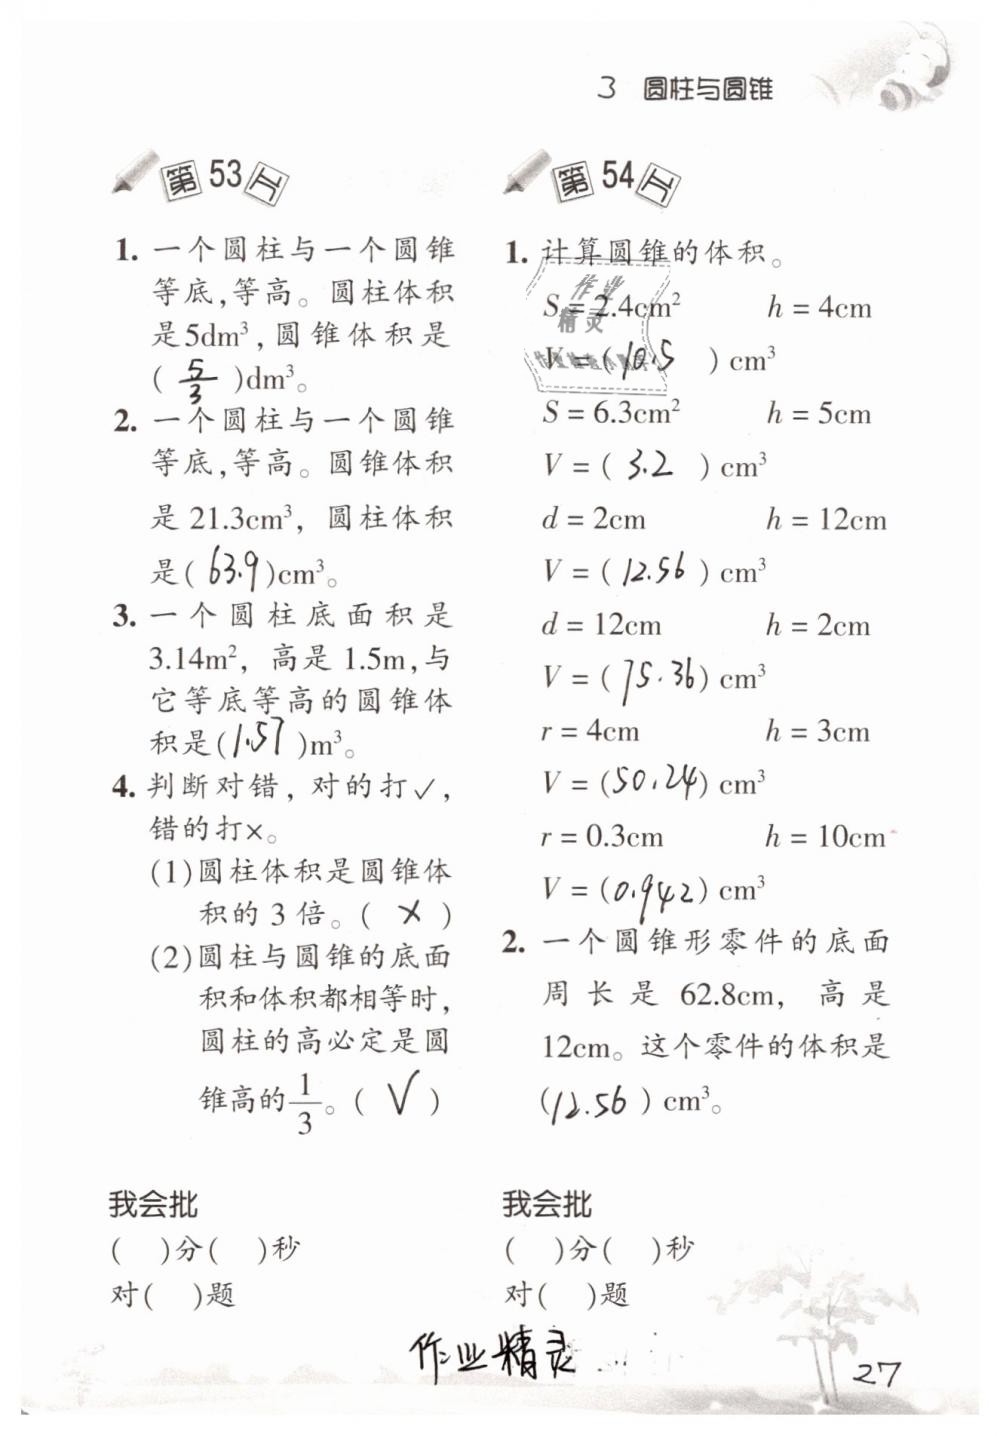 3 圆柱与圆锥
第53天
1. 一个圆柱与一个圆锥
等底,等高。圆柱体积
是5dm³,圆锥体积是
( 5/3 )dm³。
2. 一个圆柱与一个圆锥
等底,等高。圆锥体积
是21.3cm³，圆柱体积
是( 63.9 )cm³。
3. 一个圆柱底面积是
3.14m²，高是1.5m,与
它等底等高的圆锥体
积是( 1.57 )m³。
4. 判断对错，对的打✓，
错的打×。
(1)圆柱体积是圆锥体
积的3倍。( × )
(2)圆柱与圆锥的底面
积和体积都相等时，
圆柱的高必定是圆
锥高的1/3。( √ )
我会批
( )分( )秒
对( )题
第54天
1. 计算圆锥的体积。
作业
S = 2.4cm² h = 4cm
精灵
V = ( 10.5 ) cm³
S = 6.3cm² h = 5cm
V = ( 3.2 ) cm³
d = 2cm h = 12cm
V = ( 12.56 ) cm³
d = 12cm h = 2cm
V = ( 75.36 ) cm³
r = 4cm h = 3cm
V = ( 50.24 ) cm³
r = 0.3cm h = 10cm
V = ( 0.942 ) cm³
2. 一个圆锥形零件的底面
周长是62.8cm，高是
12cm。这个零件的体积是
( 12.56 ) cm³。
我会批
( )分( )秒
对( )题
作业精灵
27